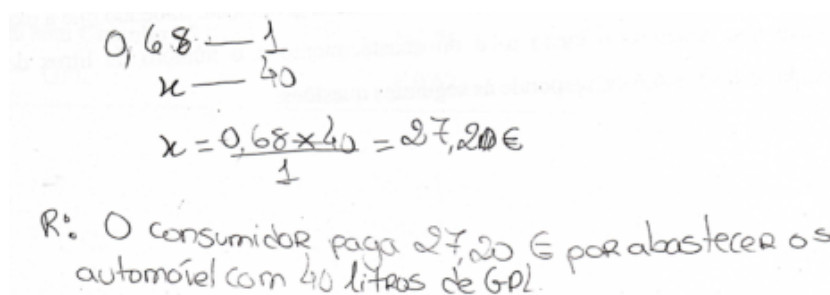 0,68 — 1
x — 40
x = 0,68 × 40 / 1 = 27,20 €
R: O consumidor paga 27,20 € por abastecer os
automóvel com 40 litros de GPL.